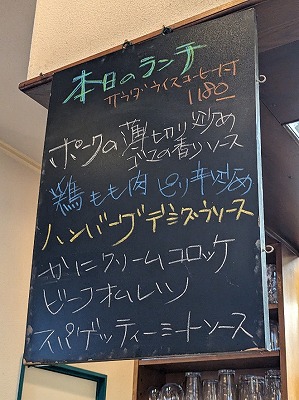 本日のランチ
サラダライスコーヒー付
1180
ポークの薄切り炒め
ゴマの香りソース
鶏もも肉ピリ辛炒め
ハンバーグデミグラソース
かにクリームコロッケ
ビーフオムレツ
スパゲッティーミートソース